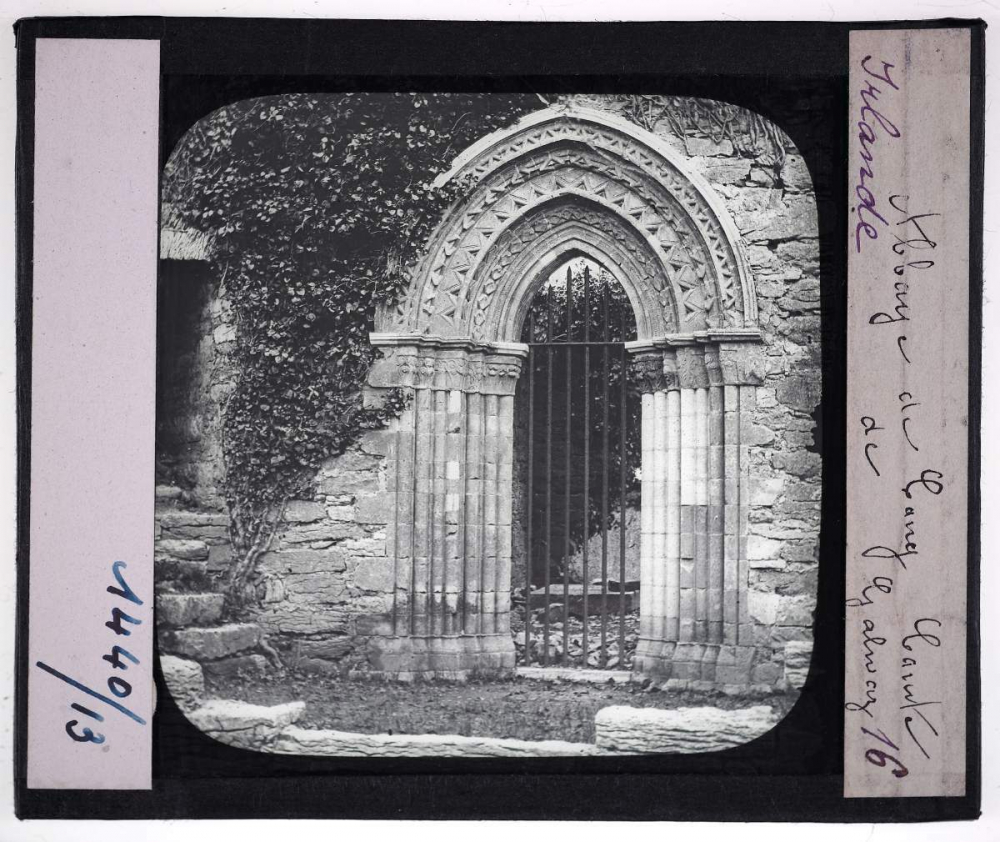 1440/13
Irlande
Abbaye de Cong Comté
de Galway 16